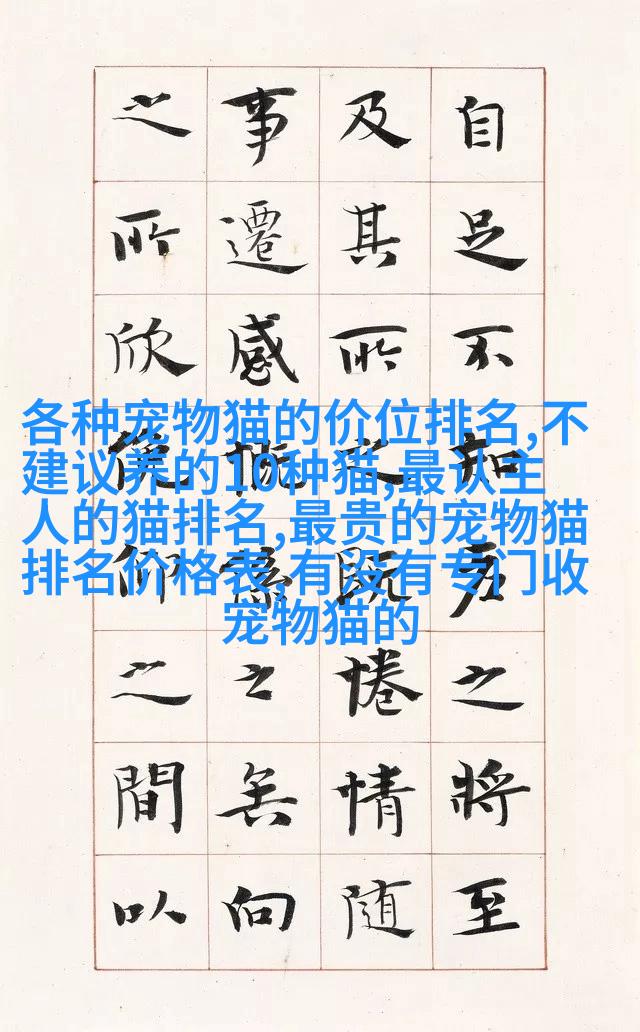 各种宠物猫的价位排名,不
建议养的10种猫,最认主
人的猫排名,最贵的宠物猫
排名价格表,有没有专门收
宠物猫的
自足不知老之將至
及其所之既惓情隨
事遷感慨係之矣向
之所欣俛仰之間以